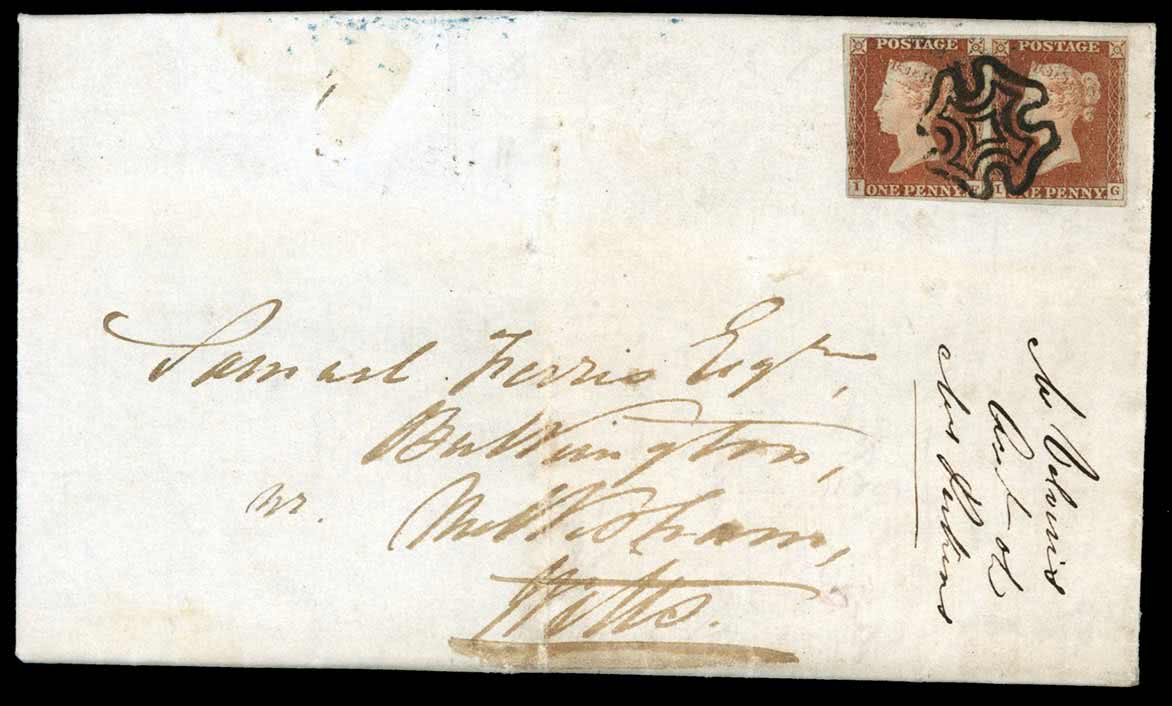 POSTAGE POSTAGE
I ONE PENNY F I ONE PENNY G
Samuel Ferris Esqre,
Bullkington,
nr. Melksham,
Wilts.
Mr
Mrs Perkins